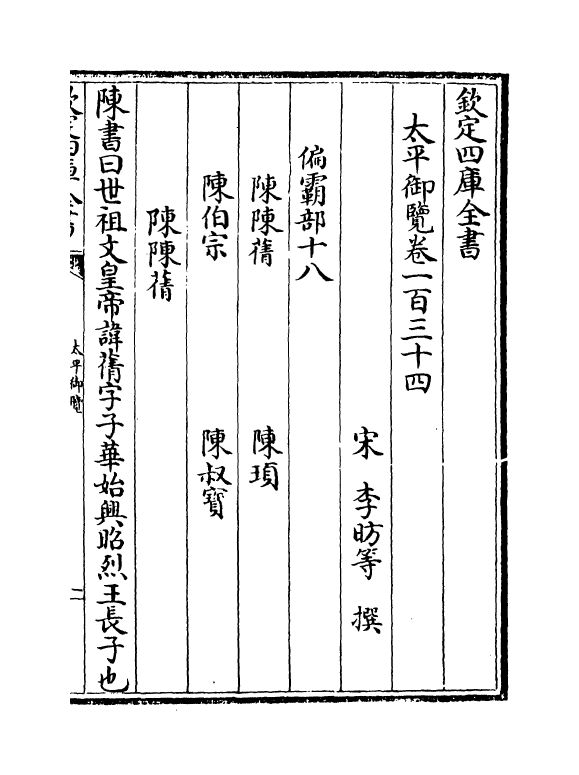 欽定四庫全書
太平御覽卷一百三十四
宋 李昉等 撰
偏霸部十八
陳陳蒨 陳頊
陳伯宗 陳叔寶
陳陳蒨
陳書曰世祖文皇帝諱蒨字子華始興昭烈王長子也
欽定四庫全書 太平御覽 二